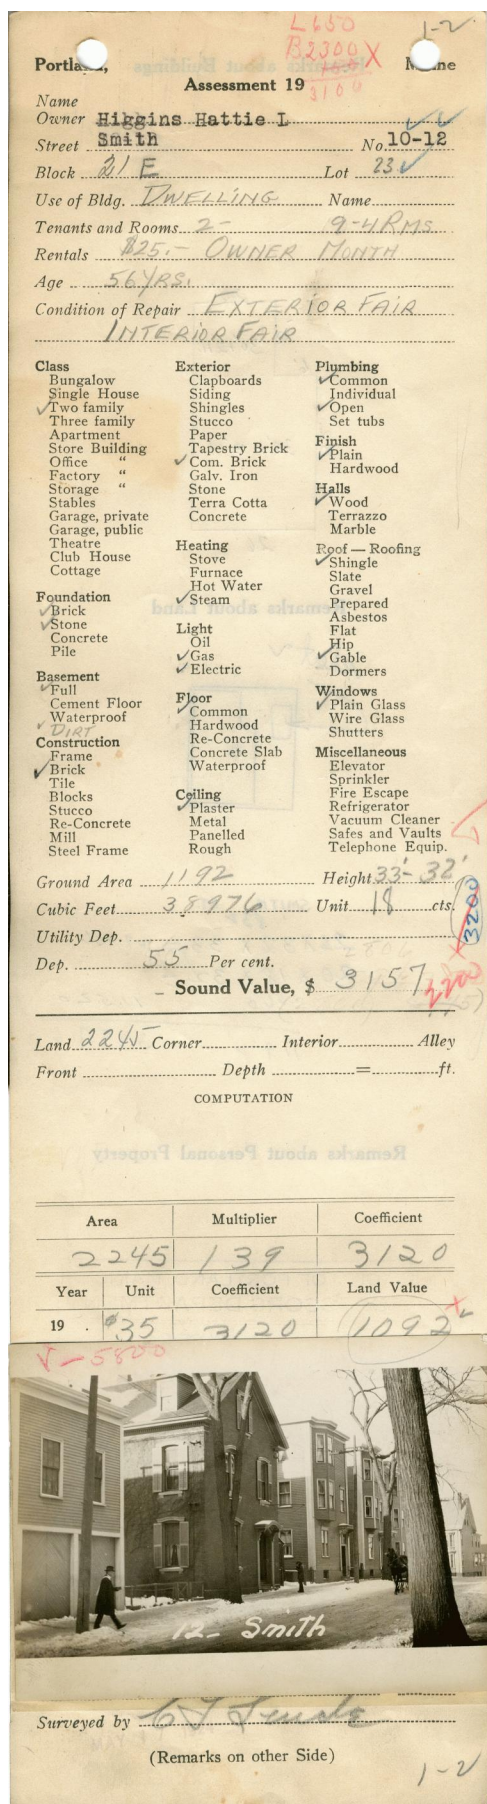 L 650
B 2300 X
3106
1-2
Portland, Maine
Assessment 19
Name
Owner Higgins Hattie L
Street Smith No. 10-12
Block 21 E Lot 23
Use of Bldg. DWELLING Name
Tenants and Rooms 2- 9-4 RMS
Rentals $25.- OWNER MONTH
Age 56 YRS.
Condition of Repair EXTERIOR FAIR
INTERIOR FAIR
Class
Bungalow
Single House
✓Two family
Three family
Apartment
Store Building
Office "
Factory "
Storage "
Stables
Garage, private
Garage, public
Theatre
Club House
Cottage
Foundation
✓Brick
✓Stone
Concrete
Pile
Basement
✓Full
Cement Floor
Waterproof
✓DIRT
Construction
Frame
✓Brick
Tile
Blocks
Stucco
Re-Concrete
Mill
Steel Frame
Exterior
Clapboards
Siding
Shingles
Stucco
Paper
Tapestry Brick
✓Com. Brick
Galv. Iron
Stone
Terra Cotta
Concrete
Heating
Stove
Furnace
Hot Water
✓Steam
Light
Oil
✓Gas
✓Electric
Floor
✓Common
Hardwood
Re-Concrete
Concrete Slab
Waterproof
Ceiling
✓Plaster
Metal
Panelled
Rough
Plumbing
✓Common
Individual
✓Open
Set tubs
Finish
✓Plain
Hardwood
Halls
✓Wood
Terrazzo
Marble
Roof — Roofing
✓Shingle
Slate
Gravel
Prepared
Asbestos
Flat
Hip
✓Gable
Dormers
Windows
✓Plain Glass
Wire Glass
Shutters
Miscellaneous
Elevator
Sprinkler
Fire Escape
Refrigerator
Vacuum Cleaner
Safes and Vaults
Telephone Equip.
Ground Area 1192 Height 33'- 32'
Cubic Feet 38976 Unit 18 cts.
3200
Utility Dep.
Dep. 55 Per cent.
Sound Value, $ 3157
Land 2245 Corner Interior Alley
Front Depth = ft.
COMPUTATION
Area Multiplier Coefficient
2245 139 3120
Year Unit Coefficient Land Value
19 . $35 3120 1092
V-5800
12- Smith
Surveyed by
(Remarks on other Side)
1-2